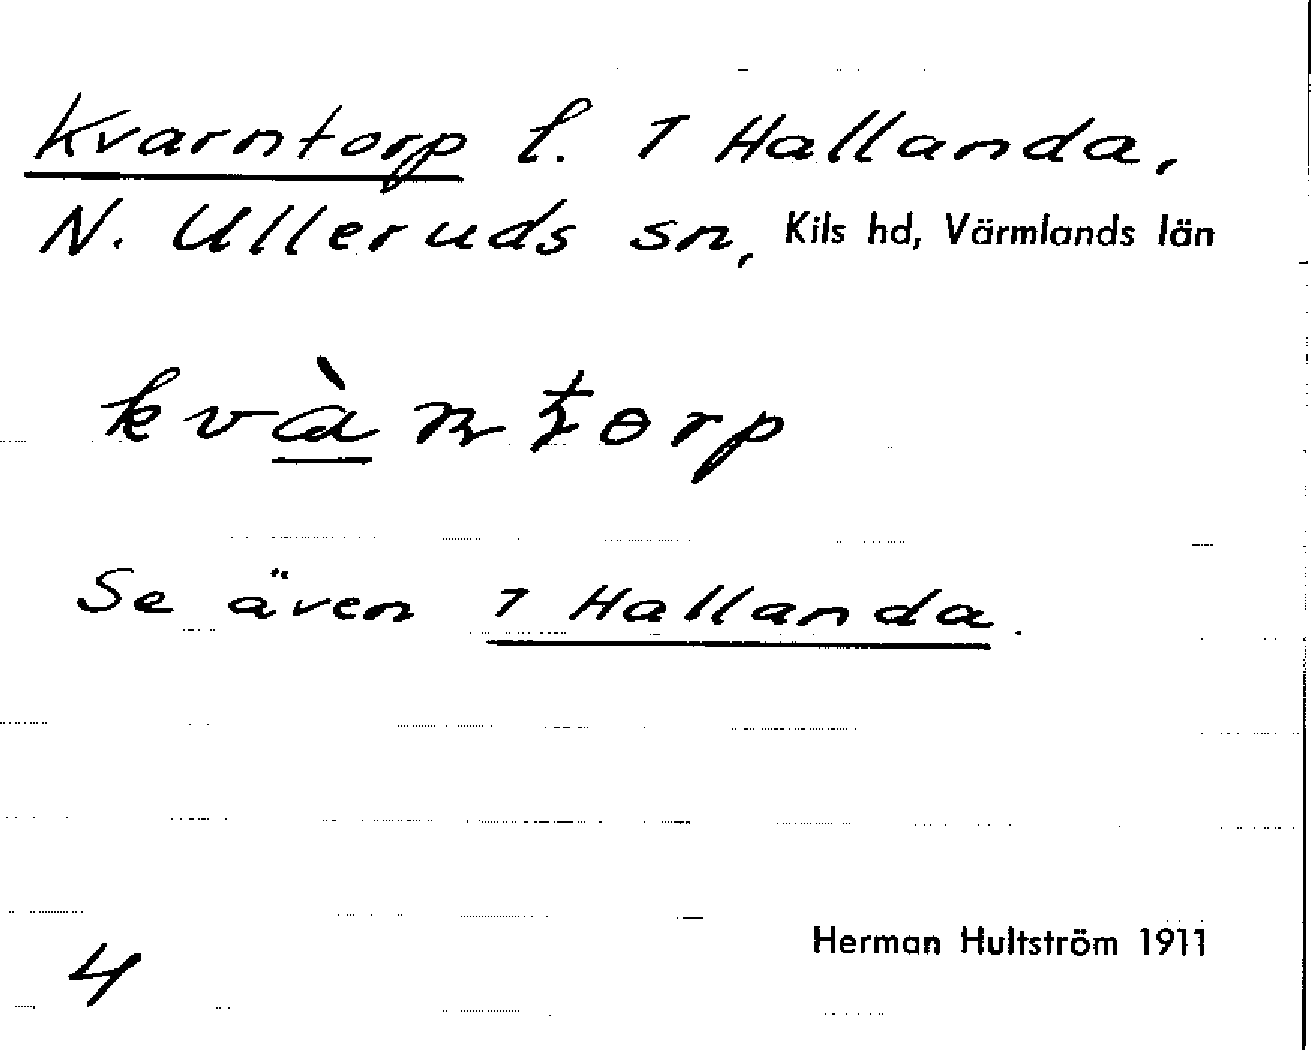 Kvarntorp l. 1 Hallanda,
N. Ulleruds sn, Kils hd, Värmlands län
kvàntorp
Se även 1 Hallanda.
Herman Hultström 1911
4